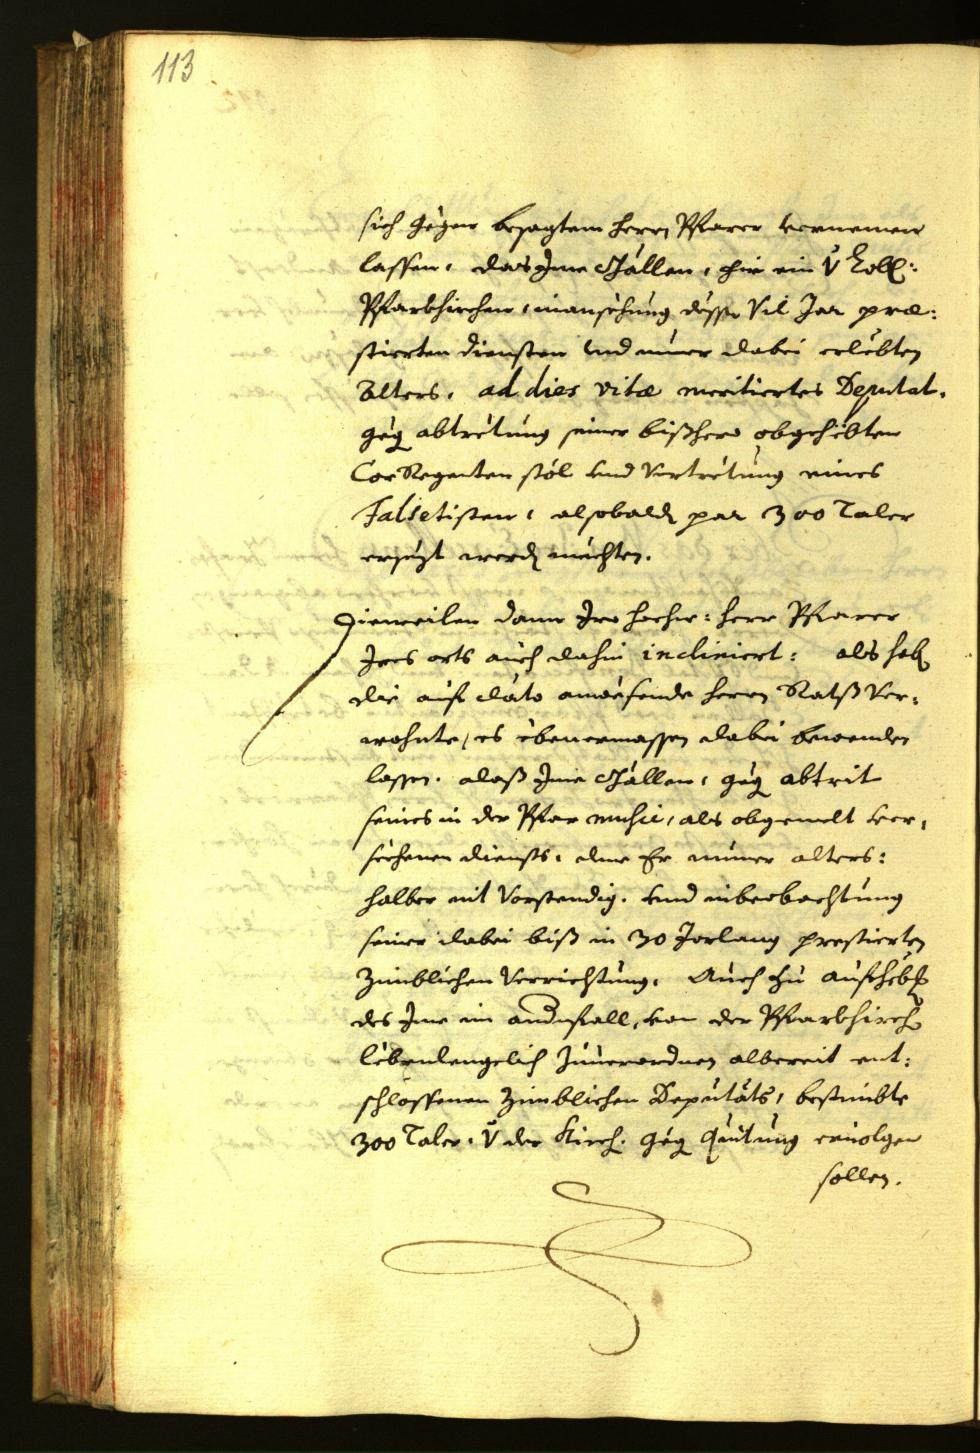 113
sich gegen besagtem herrn Pfarer vernemen
lassen, das Ime Gallen, für ein V lobl:
Pfarkhirchen, in ansehung dessen Vil Jar præ:
stierten diensten und numer dabei erlebten
Alters, ad dies vitæ meritiertes Deputat,
gegen abtretung seiner bißhero obgehebten
Cor Regenten stöl und Vertretung eines
Falsetisten, alsobalden par 300 Taler
ersezt werden mechten.
Dieweilen dann Iro hochw: herr Pfarer
Ires orts auch dahin incliniert: als haben
die auf dato anwesende herrn Ratß Ver,
wohnte, es ebenermassen dabei bewenden
lassen. daß Ime Gallen, gegen abtrit
seines in der Pfar music, als obgemelt ver,
sechenen diensts, deme Er numer alters:
halber nit Vorstendig. und in beobachtung
seiner dabei biß in 30 Jarlang prestierten
Zimblichen Verrichtung, Auch zu aufhebung
des Ime im andern fall, von der Pfarkhirchen
lebenlengelich Zuuerordnen albereit ent:
schlossenen Zimblichen Deputats, bestimbte
300 Taler, V der Kirchen gegen Quitung eruolgen
sollen.